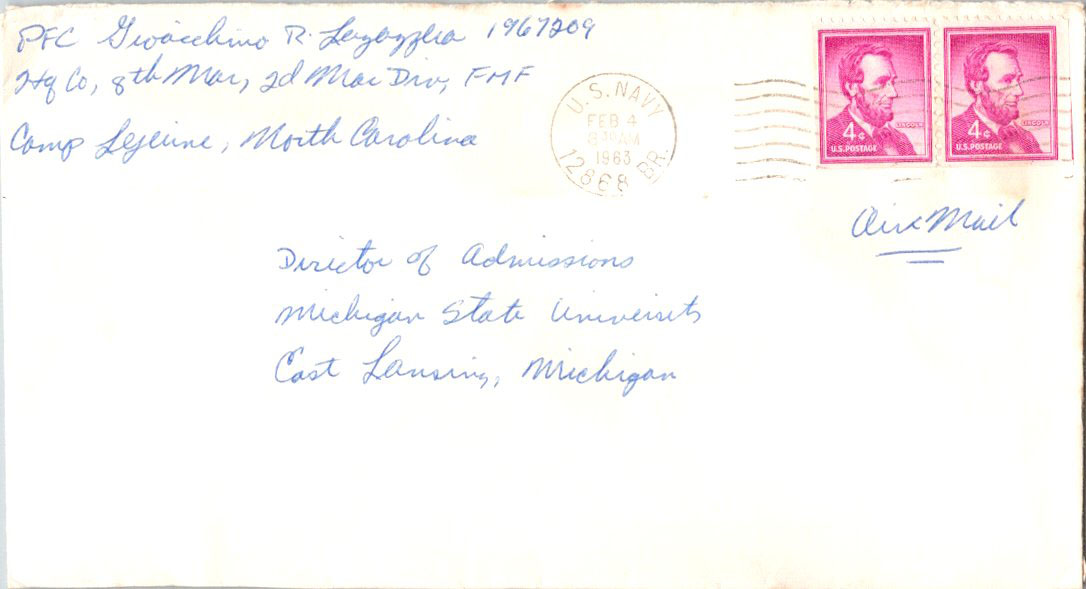 PFC Gioacchino R. 1967209
Hq Co, 8th Mar, 2d Mar Div, FMF
Camp Lejeune, North Carolina
U.S. NAVY
FEB 4
AM
1963
12868 BR.
LINCOLN
4¢
U.S. POSTAGE
LINCOLN
4¢
U.S. POSTAGE
Air Mail
Director of Admissions
Michigan State University
East Lansing, Michigan